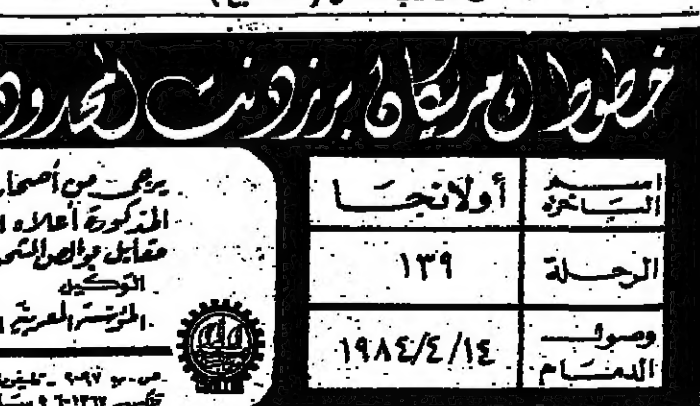 خطوط امريكان برزدنت المحدود
اسم الباخرة أولانجا
الرحلة ١٣٩
وصول الدمام ١٩٨٤/٤/١٤
يرجى من أصحا
المذكورة أعلاه ا
مقابل بوالص الشحن
التوكيل
ص.ب ٩٠٩٧